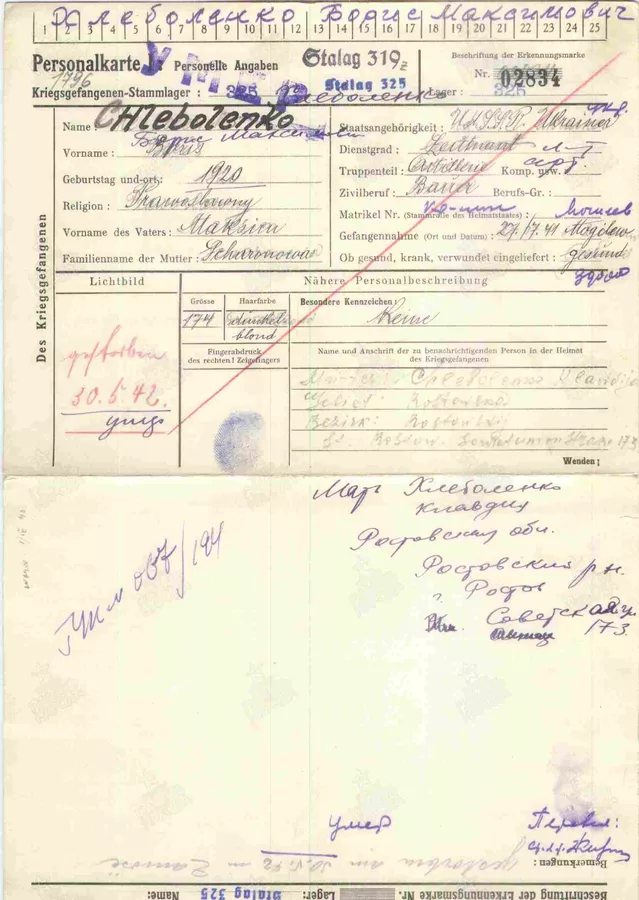 Хлеболенко Борис Максимович
1 2 3 4 5 6 7 8 9 10 11 12 13 14 15 16 17 18 19 20 21 22 23 24 25
Personalkarte I: Personelle Angaben
1796
Kriegsgefangenen-Stammlager: Stalag 319z
325 Stalag 325
Хлеболенко
Beschriftung der Erkennungsmarke
Nr. 02834
Lager: 325
Des Kriegsgefangenen
Name: CHlebolenko
Борис Максимович
Vorname: Boris
Geburtstag und -ort: 1920
Religion:
Vorname des Vaters: Maksim
Familienname der Mutter:
Staatsangehörigkeit: U.d.S.S.R. Ukrainer укр.
Dienstgrad: Leitnant л-т
Truppenteil: Artillerie Komp. usw.: арт.
Zivilberuf: Bauer Berufs-Gr.:
Matrikel Nr. (Stammrolle des Heimatstaates):
Могилев
Gefangennahme (Ort und Datum): 27.7.41 Mogilew
Ob gesund, krank, verwundet eingeliefert: gesund
здоров
Lichtbild
gestorben
30.5.42.
умер
Nähere Personalbeschreibung
Grösse Haarfarbe Besondere Kennzeichen:
174 dunkelblond Keine
Fingerabdruck
des rechten! Zeigefingers
Name und Anschrift der zu benachrichtigenden Person in der Heimat
des Kriegsgefangenen
Chlebolenko
Bezirk:
173
Wenden!
Мать Хлеболенко
Клавдия
Ростовская обл.
Ростовский р-н.
г. Ростов
Советская ул.
173
умер
Перевел:
Bemerkungen: gestorben am 30.5.42 in Zamość
Beschriftung der Erkennungsmarke Nr.
Lager: Stalag 325
Name: